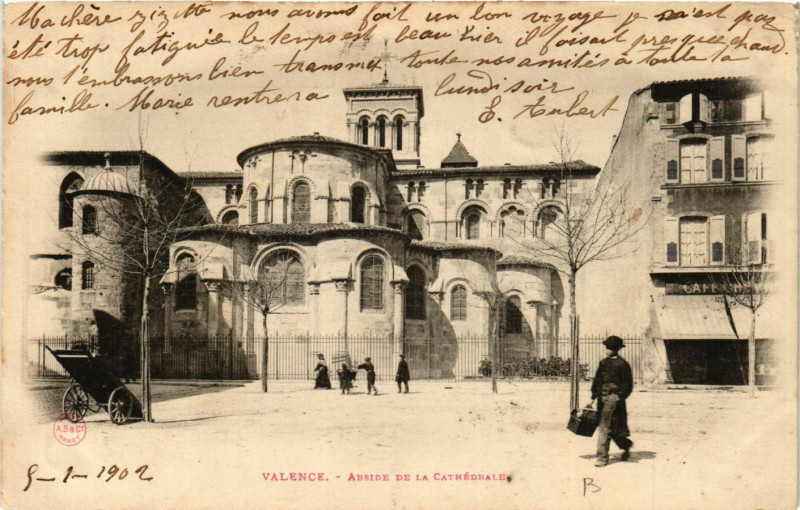 Ma chère zizette nous avons fait un bon voyage je n'est pas
été trop fatiguée le temps est beau hier il faisait presque chaud
nous t'embrassons bien transmet toute nos amitiés à toute ta
famille. Marie rentrera lundi soir
E. Aubert
CAFÉ
A.B & Cie
NANCY
5-1-1902
VALENCE. - ABSIDE DE LA CATHÉDRALE
B